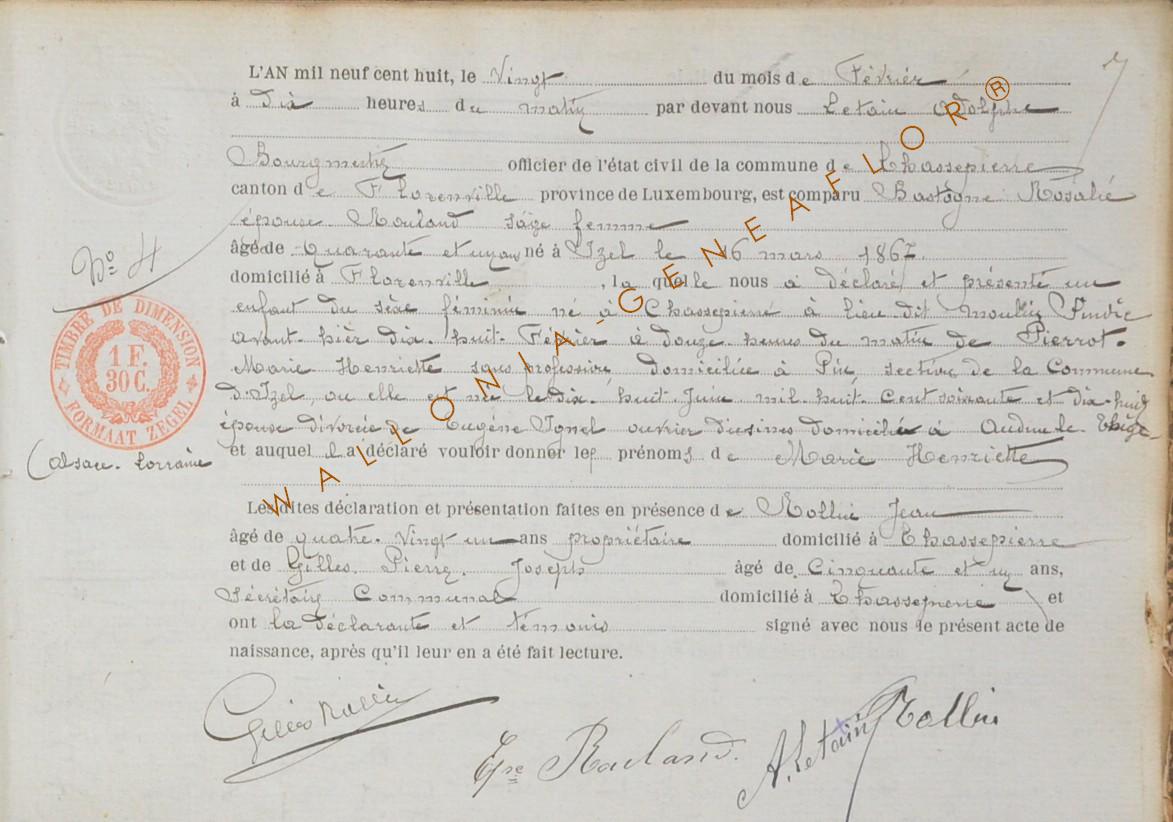 L'AN mil neuf cent huit, le Vingt du mois de Février
à dix heures du matin par devant nous Letain Adolphe
Bourgmestre officier de l'état civil de la commune de Chassepierre
canton de Florenville province de Luxembourg, est comparu Bastogne Rosalie
épouse Rouland sage femme
âgé de quarante et un ans né à Izel le 16 mars 1867.
N° 4
domicilié à Florenville, laquelle nous a déclaré et présenté un
enfant du sexe féminin né à Chassepierre à lieu dit moulin
avant-hier dix-huit Février à douze heures du matin de Pierrot.
Marie Henriette sans profession domiciliée à Pin, section de la Commune
d'Izel, ou elle est né le dix-huit Juin mil-huit-Cent soixante et dix-huit
épouse divorcée de Eugène Ignel ouvrier d'usines domicilié à Audun le
(alsace-lorraine
et auquel il a déclaré vouloir donner les prénoms de Marie Henriette
Lesdites déclaration et présentation faites en présence de Rollin Jean
âgé de quatre-Vingt un ans propriétaire domicilié à Chassepierre
et de Gilles Pierre-Joseph âgé de Cinquante et un ans,
Secrétaire Communal domicilié à Chassepierre et
ont la déclarante et témoins signé avec nous le présent acte de
naissance, après qu'il leur en a été fait lecture.
TIMBRE DE DIMENSION
1 F.
30 C.
FORMAAT ZEGEL
Gilles Rollin
Epse Rouland. A. Letain Rollin
WALLONIA-GENEAFLOR®